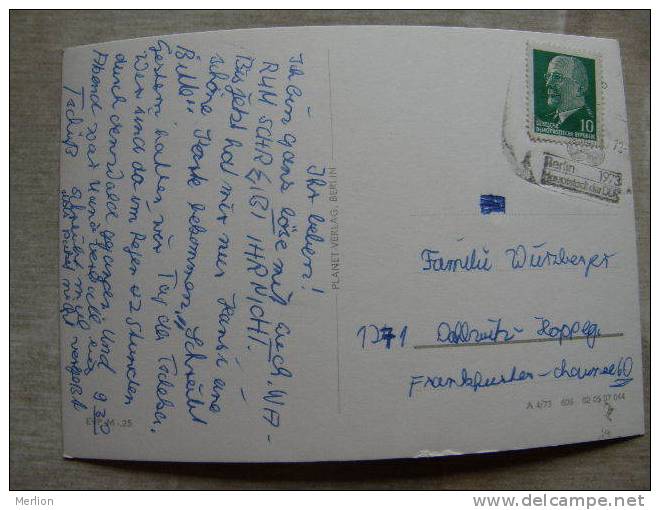 Ihr Lieben!
Ich bin ganz böse mit euch. WA-
RUM SCHREIBT IHR NICHT.
Bis jetzt hat mir nur Hansi eine
schöne Karte bekommen. Schreibt
Bitte
Gestern hatten wir Tag der
Wir sind da im Regen 02 Stunden
durch den Wald gegangen. Und
Abend war 9 30
Tschüß schreibt mir
nicht vergeßt
EVP M -.25
PLANET VERLAG, BERLIN
DEUTSCHE
DEMOKRATISCHE REPUBLIK
10
Berlin 1973
Hauptstadt der DDR
Familie Würzberger
1271 Dahlwitz-Hoppeg.
Frankfurter-chaussee 60
A 4/73 606 02 05 07 044
Merlion
http://www.delcampe.net